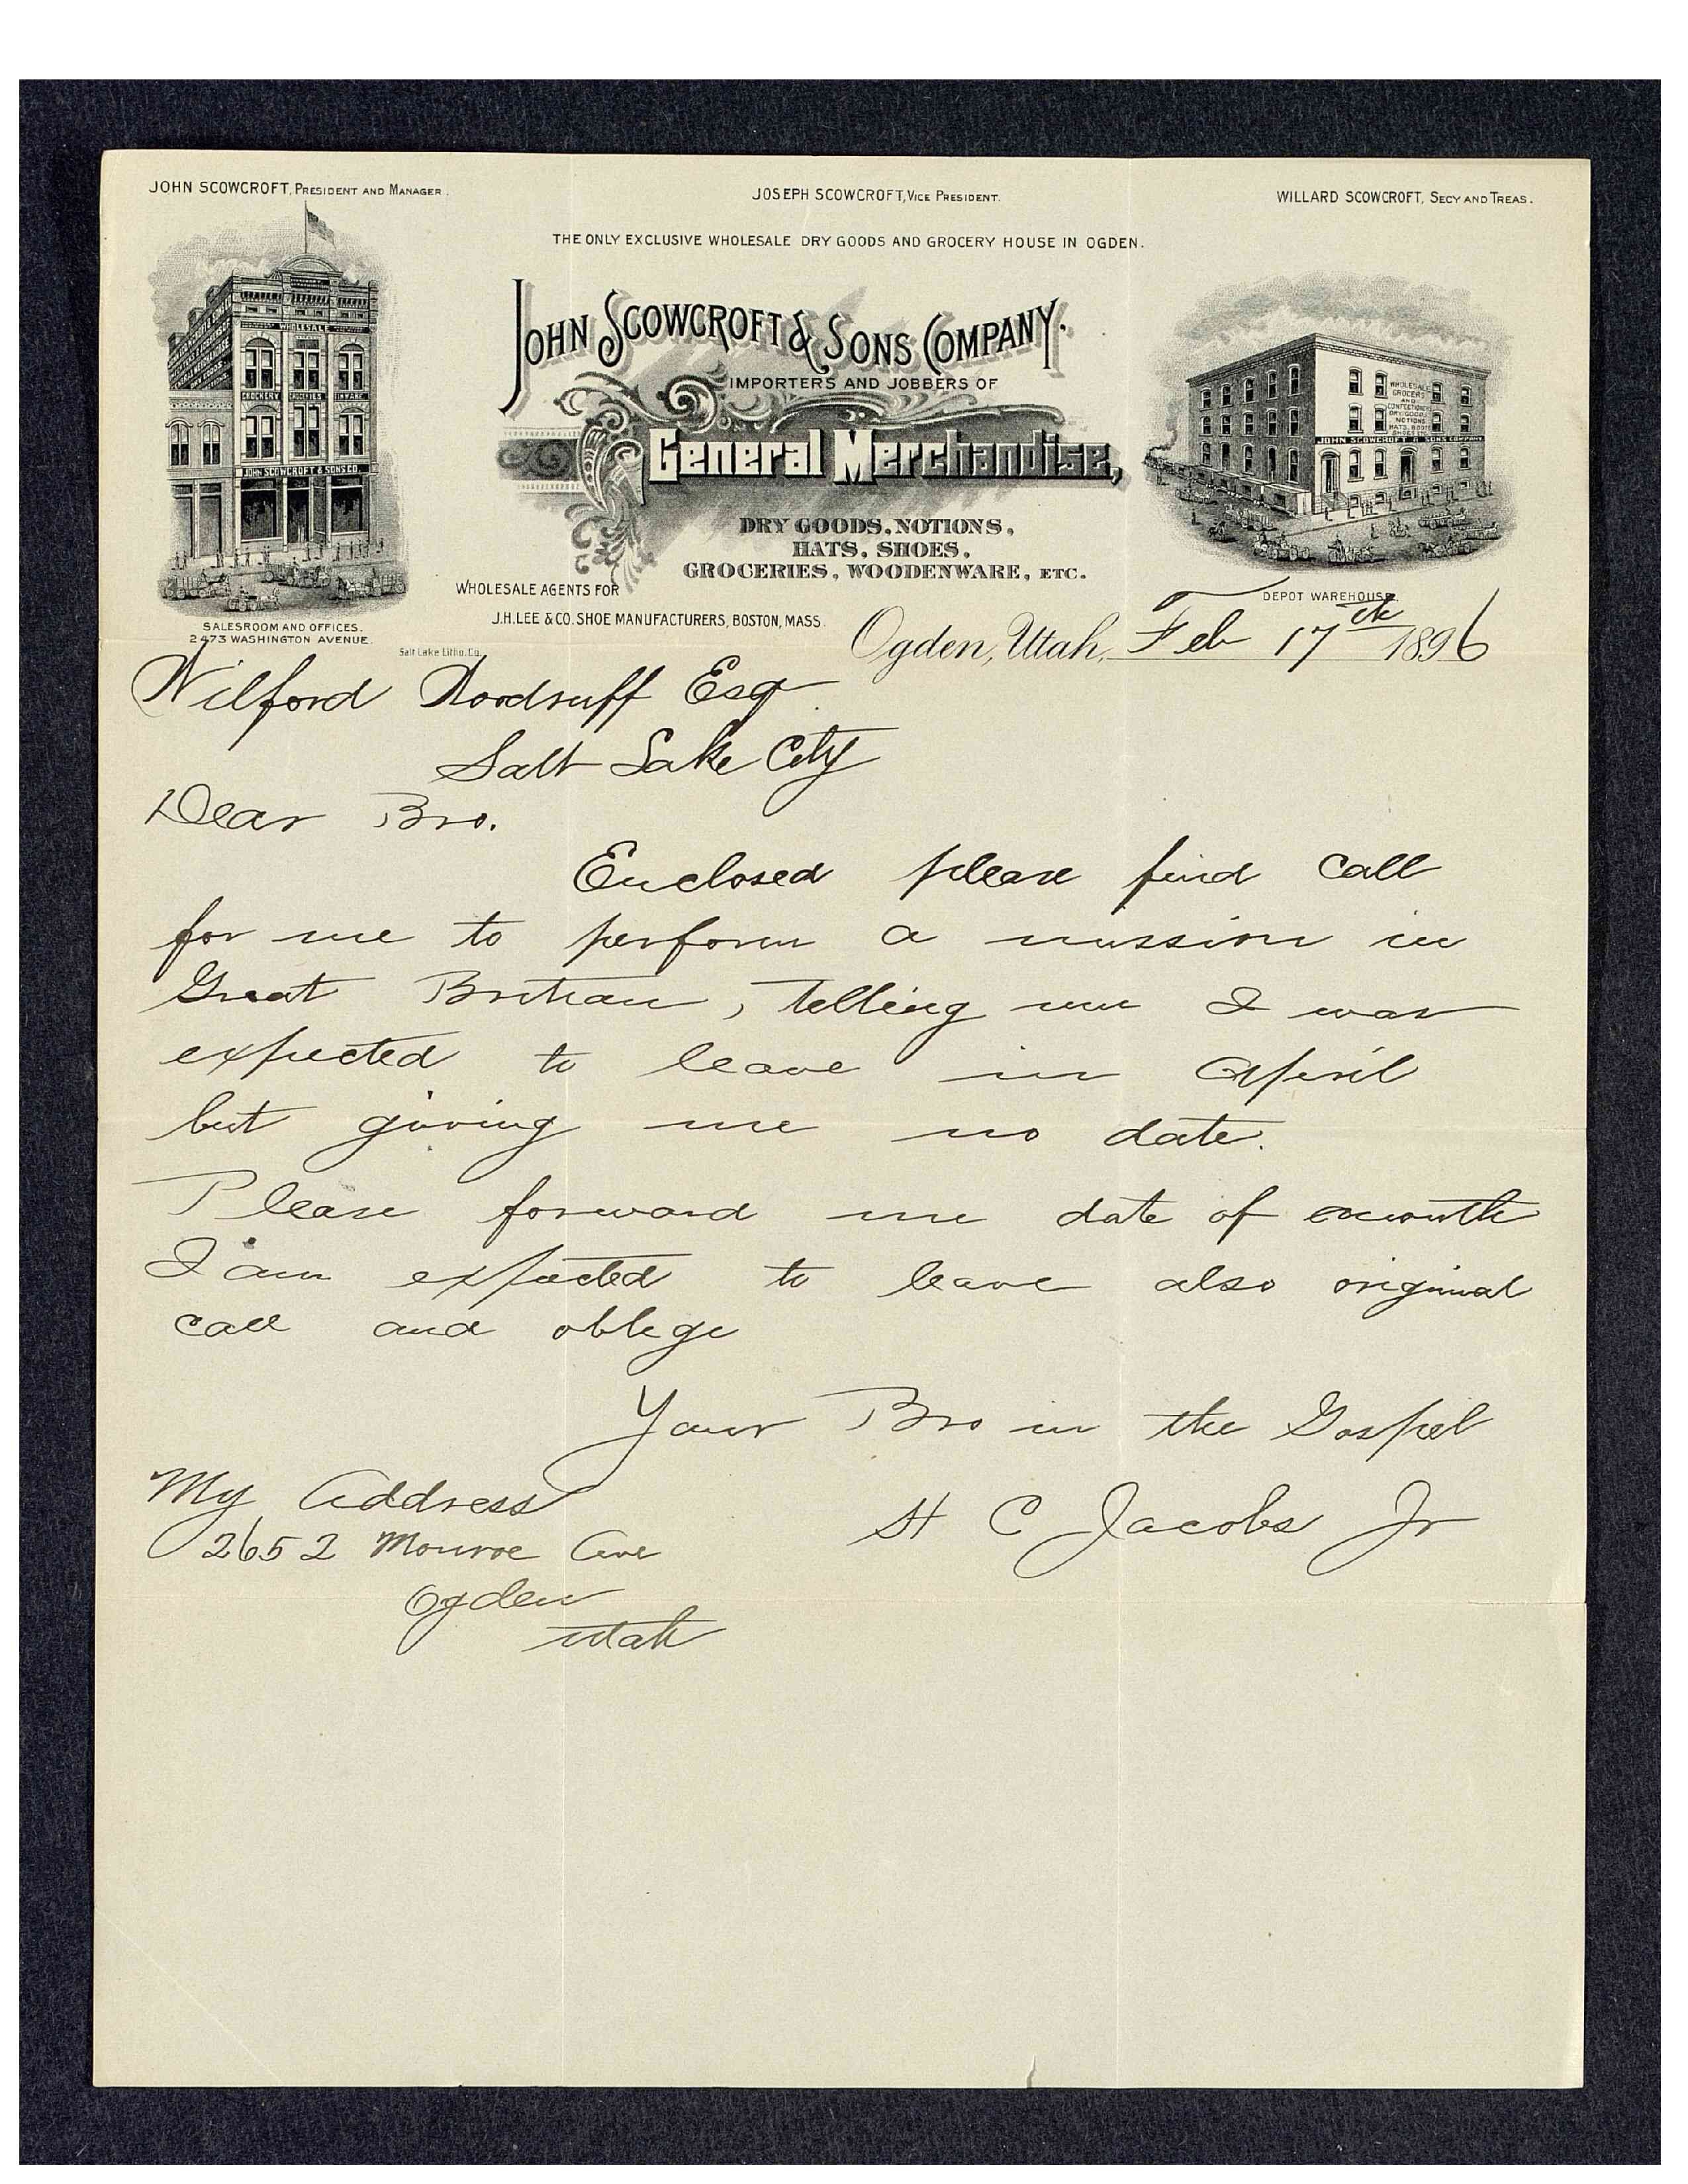 JOHN SCOWCROFT, PRESIDENT AND MANAGER.
JOSEPH SCOWCROFT, VICE PRESIDENT.
WILLARD SCOWCROFT, SECY AND TREAS.
THE ONLY EXCLUSIVE WHOLESALE DRY GOODS AND GROCERY HOUSE IN OGDEN.
JOHN SCOWCROFT & SONS COMPANY.
IMPORTERS AND JOBBERS OF
General Merchandise,
DRY GOODS, NOTIONS,
HATS, SHOES,
GROCERIES, WOODENWARE, ETC.
WHOLESALE
CROCKERY GROCERIES TINWARE
JOHN SCOWCROFT & SONS CO.
SALESROOM AND OFFICES.
2473 WASHINGTON AVENUE.
Salt Lake Litho. Co.
WHOLESALE AGENTS FOR
J.H. LEE & CO. SHOE MANUFACTURERS, BOSTON, MASS.
WHOLESALE
GROCERS
AND
CONFECTIONERY
DRY GOODS
NOTIONS
HATS, BOOTS
JOHN SCOWCROFT & SONS COMPANY
DEPOT WAREHOUSE.
Ogden, Utah, Feb 17th 1896
Wilford Woodruff Esq
Salt Lake City
Dear Bro.
Enclosed please find call
for me to perform a mission in
Great Britian, telling me I was
expected to leave in April
but giving me no date.
Please forward me date of month
I am expected to leave also original
call and oblige
Your Bro in the Gospel
H C Jacobs Jr
My Address
2652 Monroe Ave
Ogden
Utah